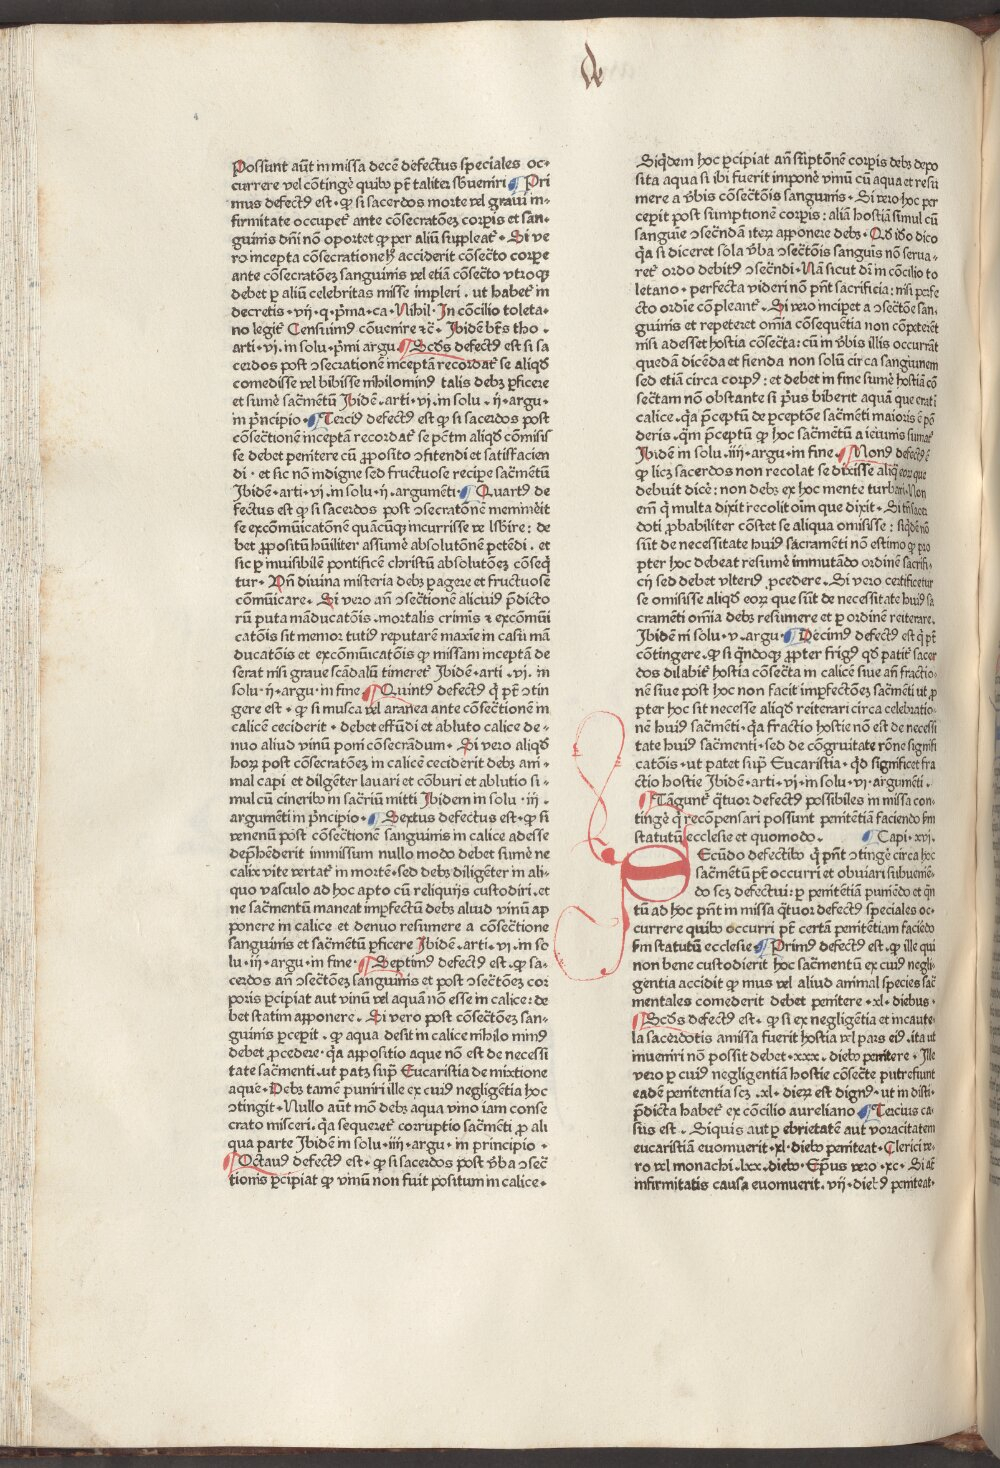 de
Possunt aūt in missa decē defectus speciales oc⸗
currere vel cōtingē quibꝰ pt̄ taliter sb̄ueniri ¶ Pri
mus defectꝰ est · ꝙ si sacerdos morte vel graui in⸗
firmitate occupet᷑ ante cōsecratōeꝫ corpis et san⸗
guinis dn̄i nō oportet ꝙ per aliū suppleat᷑ · Si ve
ro incepta cōsecratione hꝰ acciderit cōsecto corpe
ante cōsecratōeꝫ sanguinis vel etiā cōsecto vtroqꝫ
debet ꝑ aliū celebritas misse impleri . ut habet᷑ in
decretis · vij · q · pͥma · ca · Nihil · In cōcilio toleta⸗
no legit᷑ Censuimꝰ cōuenire ⁊c̄ · Ibidē bt̄s tho ·
arti · vi · in solu · pͥmi argu ¶ Scd̄s defectꝰ est si sa
cerdos post ↄsecrationē inceptā recordat᷑ se aliqd
comedisse vel bibisse nihilominꝰ talis debꝫ ꝑficere
et sumē sacm̄tū Ibidē · arti · vi · in solu · ij · argu ·
in pͥncipio · ¶ Tercius defectꝰ est ꝙ si sacerdos post
cōsectionē inceptā recordat᷑ se pctm̄ aliqd cōmisis
se debet penitere cū ꝓposito ↄfitendi et satisfacien
di · et sic nō indigne sed fructuose recipe sacm̄tū
Ibidē · arti · vi · in solu · ij · argumēti · ¶ Quartꝰ de
fectus est ꝙ si sacerdos post ↄsecratōnē meminēit
se excōmunicatōnē quācūqꝫ incurrisse ve l sb̄ire : de
bet ꝓpositū hūiliter assumē absolutōnē petēdi . et
sic ꝑ inuisibilē pontificē christū absolutōeꝫ cōseq̄
tur · Dn̄ diuina misteria debꝫ pagere et fructuose
cōmūicare · Si vero an̄ ↄsectionē alicuiꝰ p̄dicto
rū puta māducatōis . mortalis crimis ⁊ excōmūi
catōis sit memor tutiꝰ reputarē maxīe in casu mā
ducatōis et excōmūicatōis ꝙ missam inceptā de
serat nisi graue scādalū timeret᷑ Ibidē · arti · vj · in
solu · ij · argu · in fine ¶ Quintꝰ defectꝰ q̄ pt̄ ↄtin
gere est · ꝙ si musca vel aranea ante cōsectionē in
calicē ceciderit · debet effūdi et abluto calice de⸗
nuo aliud vinū poni cōsecrādum · Si vero aliqd
horꝫ post cōsecratōeꝫ in calicē ceciderit debꝫ ani⸗
mal capi et diligēter lauari et cōburi et ablutio si⸗
mul cū cineribꝰ in sacriū mitti Ibidem in solu · iij ·
argumēti in pͥncipio · ¶ Sextus defectus est · ꝙ si
venenū post cōsectionē sanguinis in calice adesse
dep̄hēderit immissum nullo modo debet sumē ne
calix vite vertat᷑ in mortē · sed debꝫ diligēter in ali⸗
quo vasculo ad hoc apto cū reliquijs custodiri . et
ne sacm̄tū maneat imꝑfectū debꝫ aliud vinū ap
ponere in calice et denuo resumere a cōsectione
sanguinis et sacm̄tū ꝑficere Ibidē · arti · vi · in so
lu · iij · argu · in fine · ¶ Septimꝰ defectꝰ est · ꝙ sa⸗
cerdos an̄ ↄsectōeꝫ sanguinis et post ↄsectōeꝫ cor
poris ꝑcipiat aut vinū vel aquā nō esse in calice: de
bet statim apponere · Si vero post cōsectōeꝫ san⸗
guinis ꝑcepit · ꝙ aqua desit in calice nihilo minꝰ
debet ꝓcedere · qͥa appositio aque nō est de necessi
tate sacm̄ti . ut patꝫ supͣ Eucaristia de mixtione
aque · Debꝫ tamē puniri ille ex cuiꝰ negligētia hoc
ↄtingit · Nullo aūt mō debꝫ aqua vino iam conse
crato misceri . qͥa sequeret᷑ corruptio sacm̄ti ꝓ ali
qua parte Ibidē in solu · iiij · argu · in principio ·
¶ Octauꝰ defectꝰ est · ꝙ si sacerdos post vb̄a ↄsec̄
tionis ꝑcipiat ꝙ vinū non fuit positum in calice ·
Siqͥdem hoc ꝑcipiat an̄ sūptōnē corpis debꝫ depo
sita aqua si ibi fuerit imponē vinū cū aqua et resu
mere a vb̄is cōsectōis sanguinis · Si vero hoc per
ceperit post sumptionē corpis : aliā hostiā simul cū
sanguīe ↄsecn̄dā iteꝝ apponere debꝫ · Qd iō dico
qͥa si diceret sola vb̄a ↄsectōis sanguīs nō serua⸗
ret᷑ ordo debitꝰ ↄsecn̄di · Nā sicut dr̄ in cōcilio to
letano · perfecta videri nō pn̄t sacrificia : nisi ꝑfe
cto ordīe cōpleant᷑ · Si vero incipet a ↄsectōe san⸗
guinis et repeteret om̄ia cōsequētia non cōpeterēt
nisi adesset hostia cōsecta : cū in vb̄is illis occurrāt
quedā dicēda et fienda non solū circa sanguinem
sed etiā circa corpꝰ : et debet in fine sumē hostiā cō
sectam nō obstante si pͥus biberit aquā que erat ī
calice . qͥa p̄ceptū de ꝑceptōe sacm̄ti maioris ē pō
deris . qͣm p̄ceptū ꝙ hoc sacm̄tū a ieiunis sumat᷑
Ibidē in solu · iiij · argu · in fine · ¶ Nonꝰ defectꝰ ē
ꝙ licꝫ sacerdos non recolat se dixisse aliq̄ eorum que
debuit dicē : non debꝫ ex hoc mente turbari . Non
em̄ qͥ multa dixit recolit oīm que dixit · Si tn̄ sacer
doti ꝓbabiliter cōstet se aliqua omisisse : siqͥdē nō
sūt de necessitate huiꝰ sacramēti nō estimo ꝙ pro
pter hoc debeat resumē immutādo ordinē sacrifi⸗
cij sed debet vlteriꝰ ꝓcedere · Si vero certificetur
se omisisse aliqd eorꝫ que sūt de necessitate huiꝰ sa
cramēti omīa debꝫ resumere et ꝑ ordinē reiterare .
Ibidē in solu · v · argu · ¶ Decimꝰ defectꝰ est q̄ pt̄
cōtingere . ꝙ si qn̄doqꝫ ꝓpter frigꝰ qd patit᷑ sacer
dos dilabit᷑ hostia cōsecta in calicē siue an̄ fractio⸗
nē siue post hoc non facit imꝑfectōeꝫ sacm̄ti ut ꝓ
pter hoc sit necesse aliqd reiterari circa celebratio⸗
nē huiꝰ sacm̄ti · qͥa fractio hostie nō est de necessi
tate huiꝰ sacm̄enti · sed de cōgruitate rōne signifi
catōis · ut patet supͣ Eucaristia · qd̄ significet fra
ctio hostie Ibidē · arti · vi · in solu · vi · argumēti ·
¶ Tāgunt᷑ qͣtuor defectꝰ possibiles in missa con⸗
tingē qͥ recōpensari possunt penitētia faciendo fm̄
statutū ecclesie et quomodo · ¶ Capi · xvi ·
SEcūdo defectibꝰ qͥ pn̄t ↄtingē circa hoc
sacm̄tū pt̄ occurri et obuiari subuenie⸗
do scꝫ defectui : ꝑ penitētiā puniēdo et qn̄
tū ad hoc pn̄t in missa qͣtuor defectꝰ speciales oc⸗
currere quibꝰ occurri pt̄ certā penitētiam faciēdo
fm̄ statutū ecclesie ¶ Primꝰ defectꝰ est . ꝙ ille qui
non bene custodierit hoc sacm̄entū ex cuiꝰ negli⸗
gentia accidit ꝙ mus vel aliud animal species sac̄
mentales comederit debet penitere · xl · diebus ·
¶ Scd̄s defectꝰ est · ꝙ si ex negligētia et incaute⸗
la sacerdotis amissa fuerit hostia vel pars eiꝰ . ita ut
inueniri nō possit debet · xxx · diebꝰ penitere · Ille
vero ꝑ cuiꝰ negligentiā hostie cōsecte putrefiunt
eadē penitentia scꝫ · xl · dierꝫ est dignꝰ · ut in disti⸗
p̄dicta habet᷑ ex cōcilio aureliano ¶ Tercius ca⸗
sus est · Siquis aut ꝑ ebrietatē aut voracitatem
eucaristiā euomuerit · xl · diebꝰ peniteat · Clerici ve⸗
ro vel monachi · lxx · diebꝰ · Ep̄us vero · xc · Si at̄
infirmitatis causa euomuerit . vij · diebꝰ peniteat ·